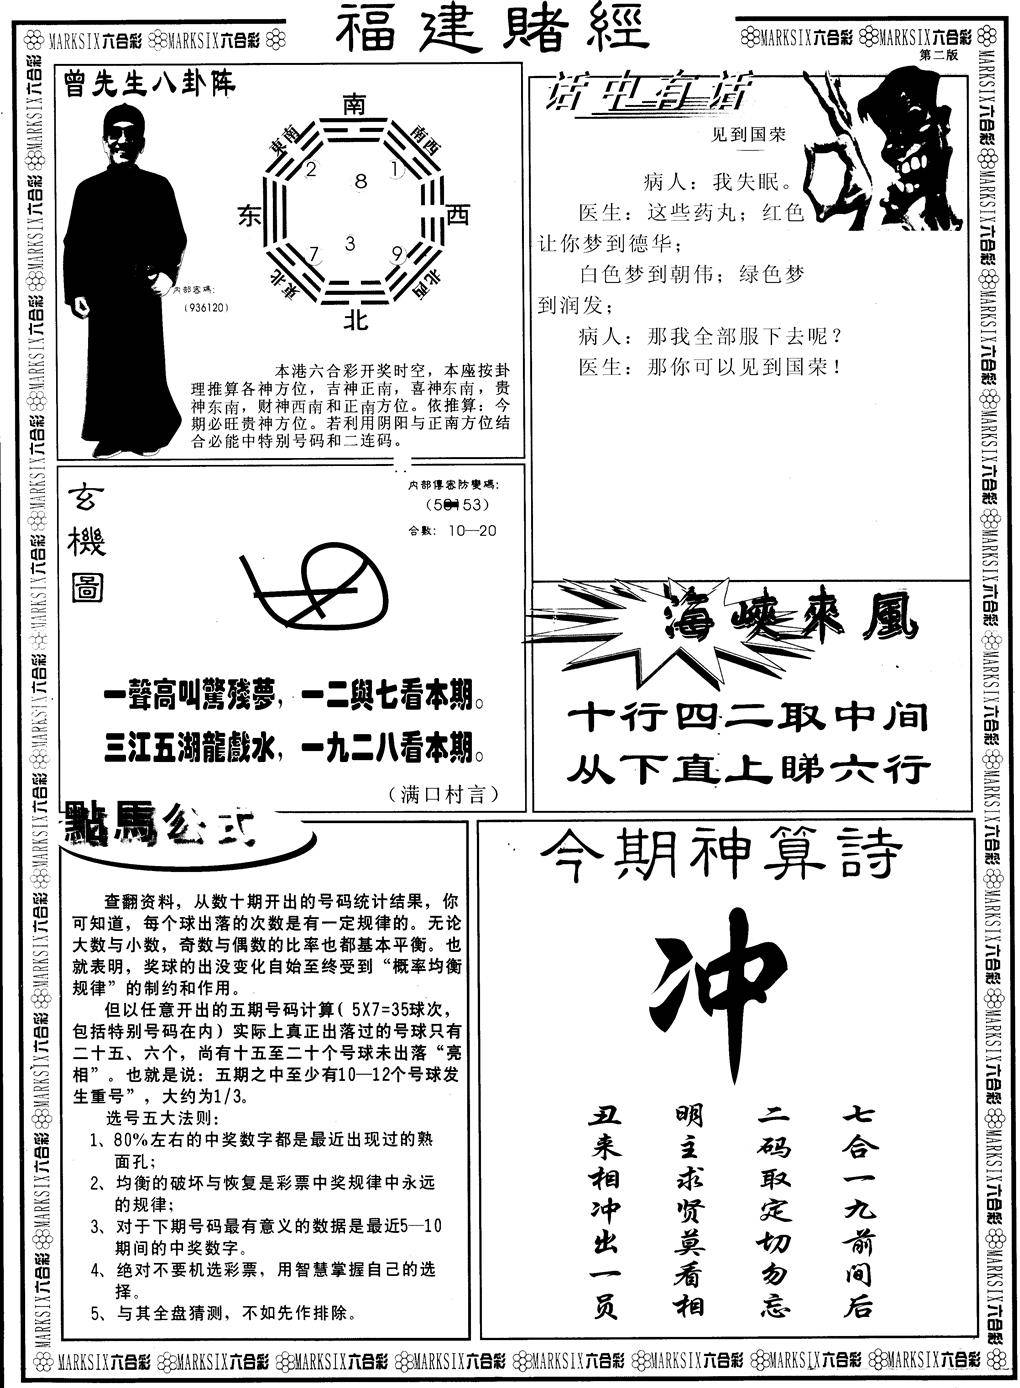 福建賭經
MARKSIX六合彩 MARKSIX六合彩
MARKSIX六合彩 MARKSIX六合彩
第二版
曾先生八卦阵
南
東南
南西
2
8
1
东
西
7
3
9
東北
北西
北
内部密碼:
(936120)
本港六合彩开奖时空，本座按卦
理推算各神方位，吉神正南，喜神东南，贵
神东南，财神西南和正南方位。依推算：今
期必旺贵神方位。若利用阴阳与正南方位结
合必能中特别号码和二连码。
话中有话
见到国荣
病人：我失眠。
医生：这些药丸；红色
让你梦到德华；
白色梦到朝伟；绿色梦
到润发；
病人：那我全部服下去呢？
医生：那你可以见到国荣！
玄機圖
内部傳密防變碼:
合數: 10—20
一聲高叫驚殘夢，一二與七看本期。
三江五湖龍戲水，一九二八看本期。
（满口村言）
海峽來風
十行四二取中间
从下直上睇六行
點馬公式
查翻资料，从数十期开出的号码统计结果，你
可知道，每个球出落的次数是有一定规律的。无论
大数与小数，奇数与偶数的比率也都基本平衡。也
就表明，奖球的出没变化自始至终受到“概率均衡
规律”的制约和作用。
但以任意开出的五期号码计算( 5X7=35球次，
包括特别号码在内) 实际上真正出落过的号球只有
二十五、六个，尚有十五至二十个号球未出落“亮
相”。也就是说：五期之中至少有10—12个号球发
生重号”，大约为1/3。
选号五大法则：
1、80%左右的中奖数字都是最近出现过的熟
面孔；
2、均衡的破坏与恢复是彩票中奖规律中永远
的规律；
3、对于下期号码最有意义的数据是最近5—10
期间的中奖数字。
4、绝对不要机选彩票，用智慧掌握自己的选
择。
5、与其全盘猜测，不如先作排除。
今期神算詩
冲
七合一九前间后
二码取定切勿忘
明主求贤莫看相
丑来相冲出一员
MARKSIX六合彩 MARKSIX六合彩 MARKSIX六合彩 MARKSIX六合彩 MARKSIX六合彩 MARKSIX六合彩 MARKSIX六合彩 MARKSIX六合彩